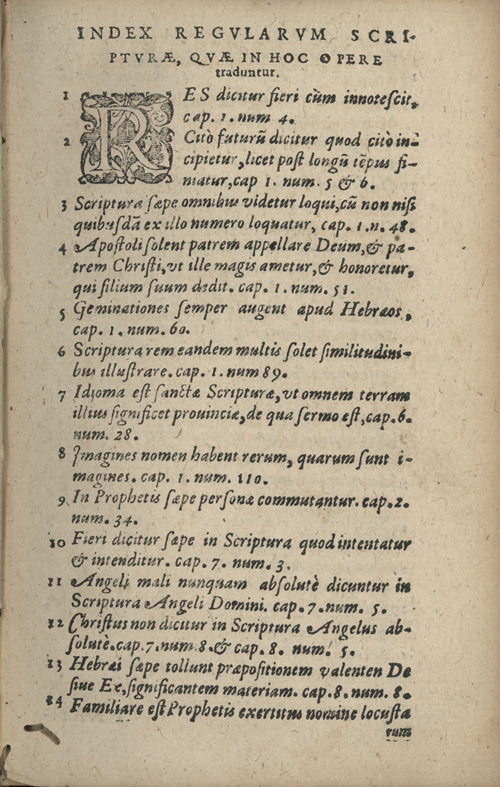 INDEX REGVLARVM SCRI-
PTVRÆ, QVÆ IN HOC OPERE
traduntur.
1 RES dicitur fieri cùm innotescit,
cap. 1. num 4.
2 Citò futurũ dicitur quod citò in-
cipietur, licet post longũ tẽpus fi-
niatur, cap 1. num. 5 & 6.
3 Scriptura sæpe omnibus videtur loqui, cũ non nisi
quibusdã ex illo numero loquatur, cap. 1. n. 48.
4 Apostoli solent patrem appellare Deum, & pa-
trem Christi, vt ille magis ametur, & honoretur,
qui filium suum dedit. cap. 1. num. 51.
5 Geminationes semper augent apud Hebræos,
cap. 1. num. 60.
6 Scriptura rem eandem multis solet similitudini-
bus illustrare. cap. 1. num 89.
7 Idioma est sanctæ Scripturæ, vt omnem terram
illius significet prouinciæ, de qua sermo est, cap. 6.
num. 28.
8 Imagines nomen habent rerum, quarum sunt i-
magines. cap. 1. num. 110.
9 In Prophetis sæpe personæ commutantur. cap. 2.
num. 34.
10 Fieri dicitur sæpe in Scriptura quod intentatur
& intenditur. cap. 7. num. 3.
11 Angeli mali nunquam absolutè dicuntur in
Scriptura Angeli Domini. cap. 7. num. 5.
12 Christus non dicitur in Scriptura Angelus ab-
solutè. cap. 7. num. 8. & cap. 8. num. 5.
13 Hebræi sæpe tollunt præpositionem valentem De
siue Ex, significantem materiam. cap. 8. num. 8.
14 Familiare est Prophetis exercitus nomine locusta
rum